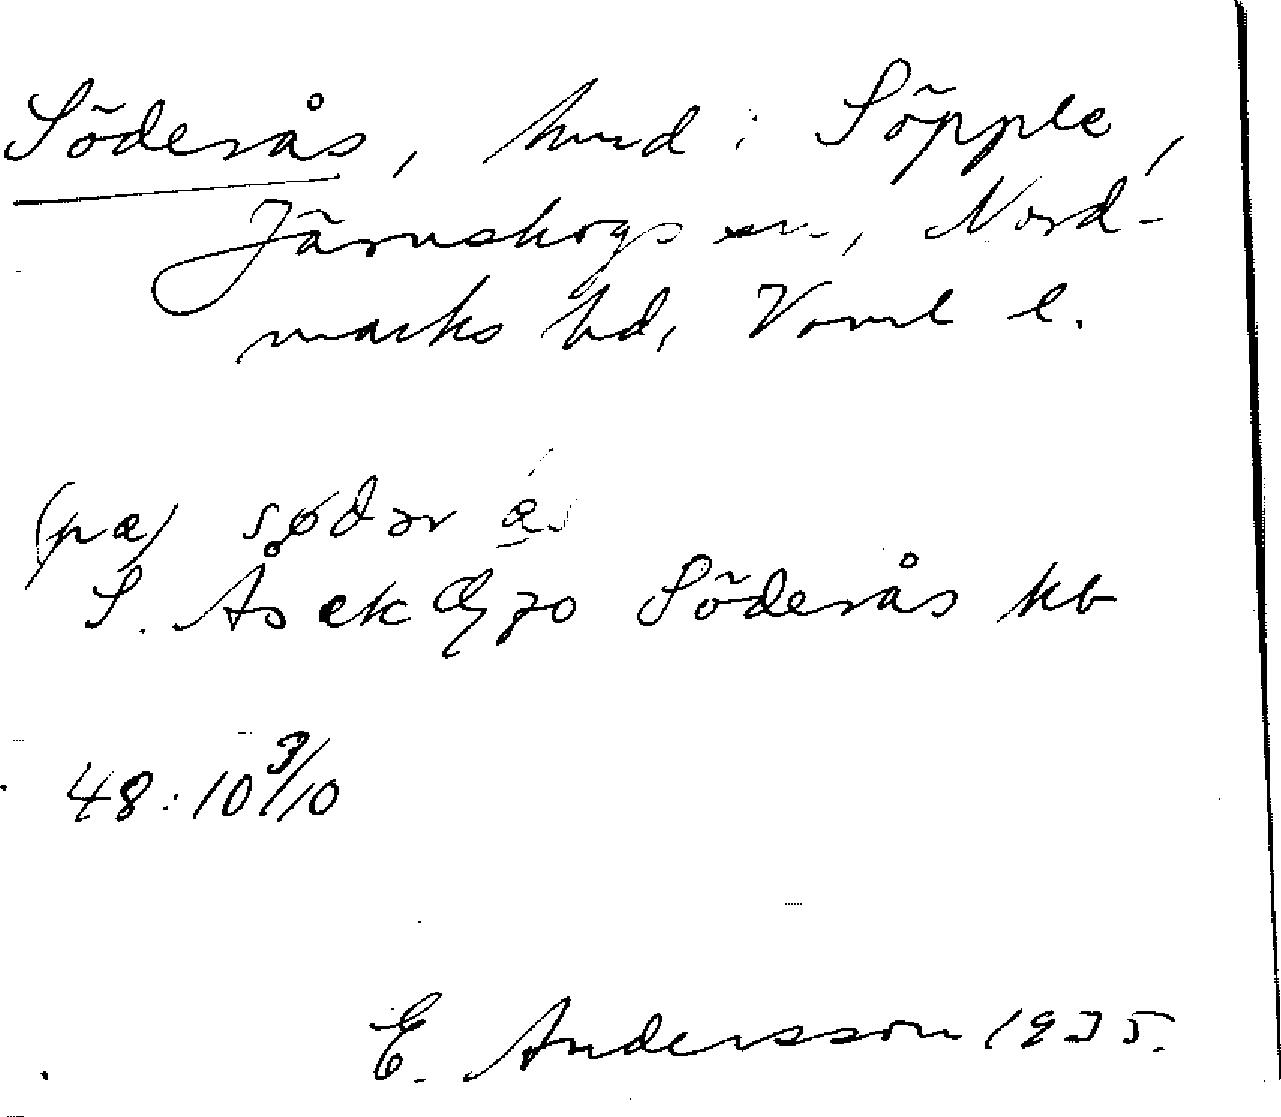 Söderås, hmd i Söpple,
Järnskogs sn., Nord-
marks hd, Vrml l.
(pa) södər
S. Ås ek 70 Söderås kb
48:10 3/10
E. Andersson 1935.